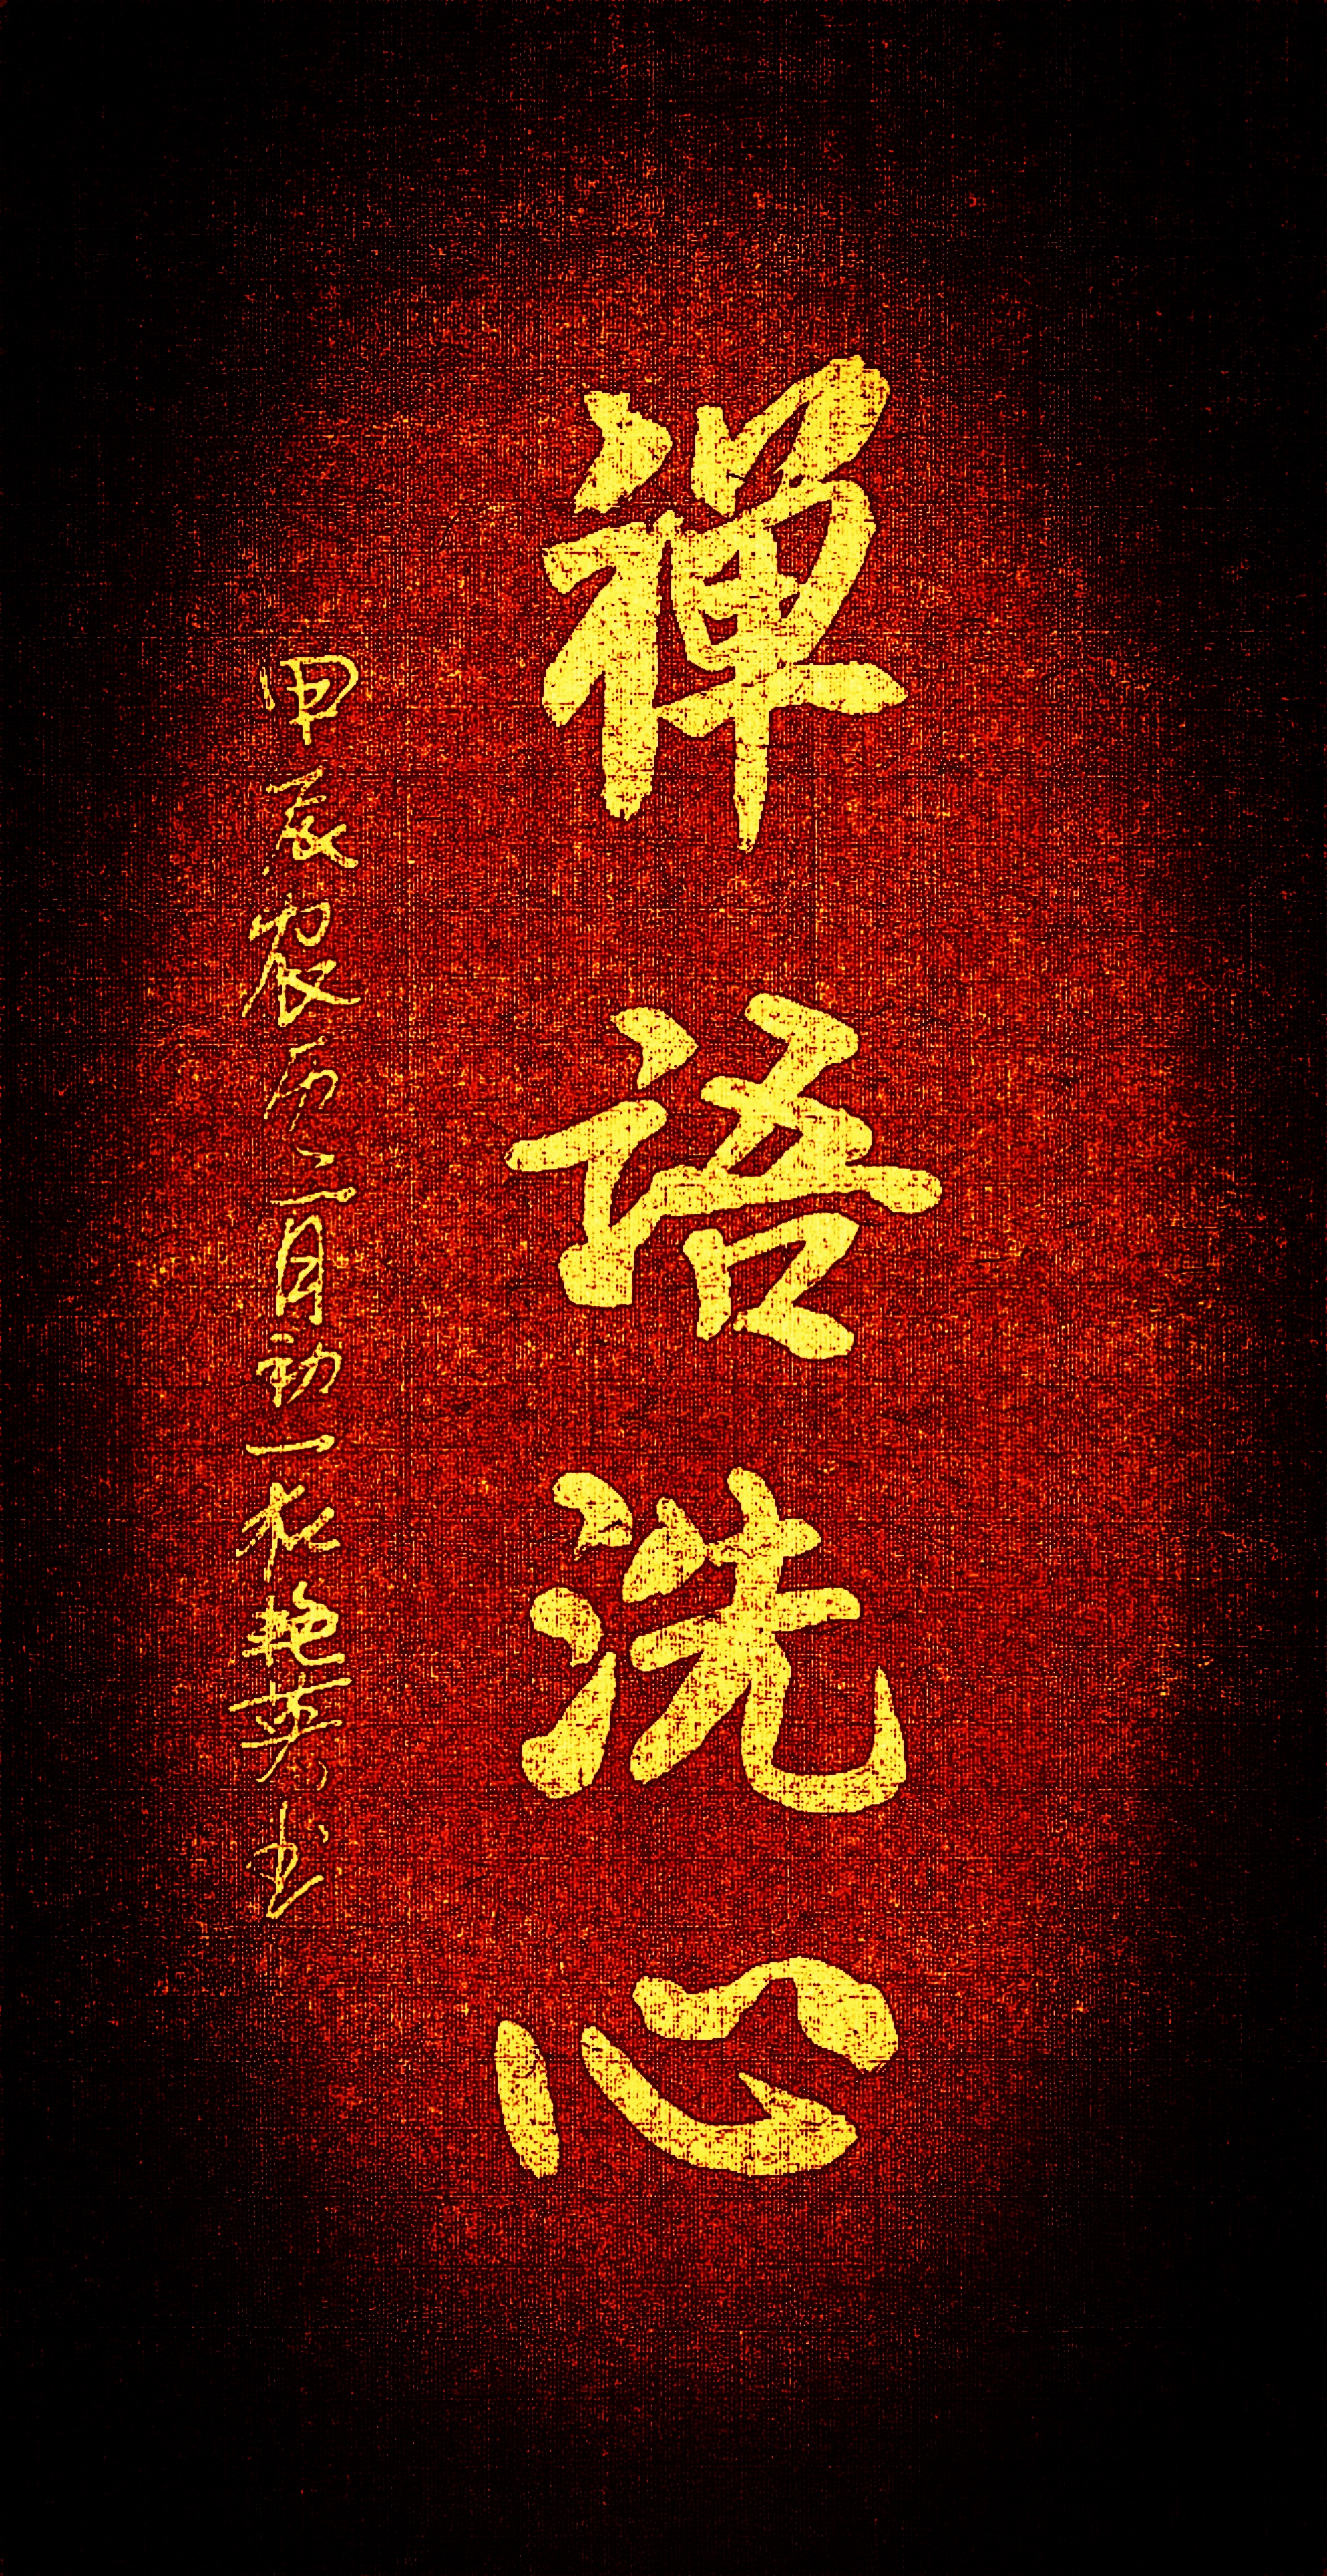 禅语洗心
甲辰农历二月初一张艳英书